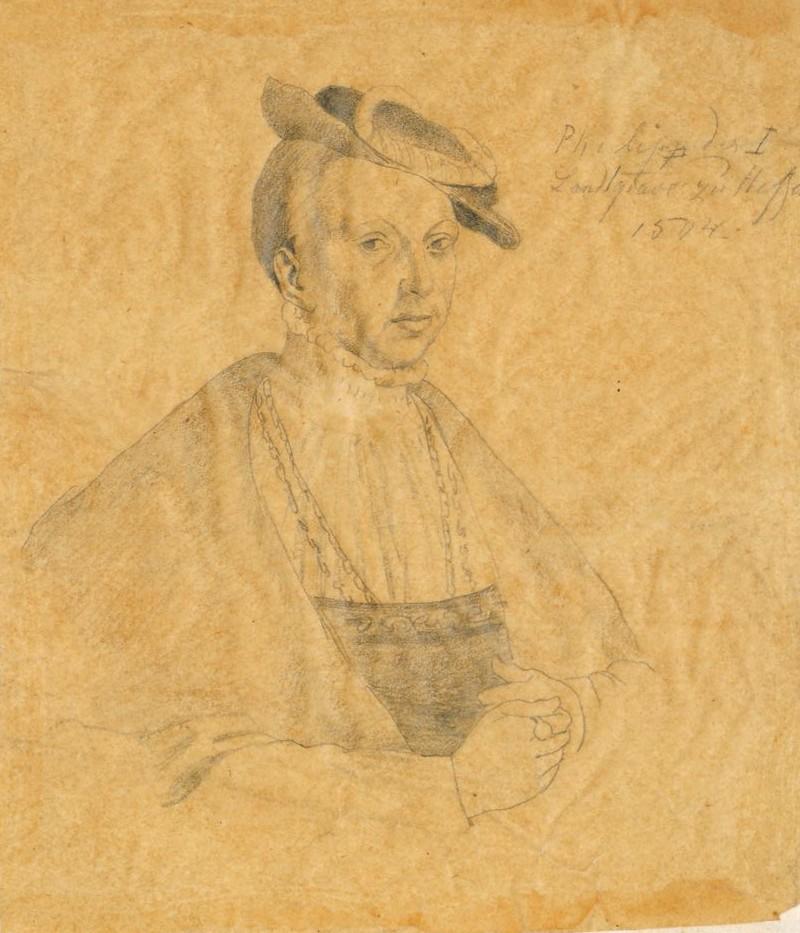 Philipp der I
Landtgrave zu Hesse
1504.